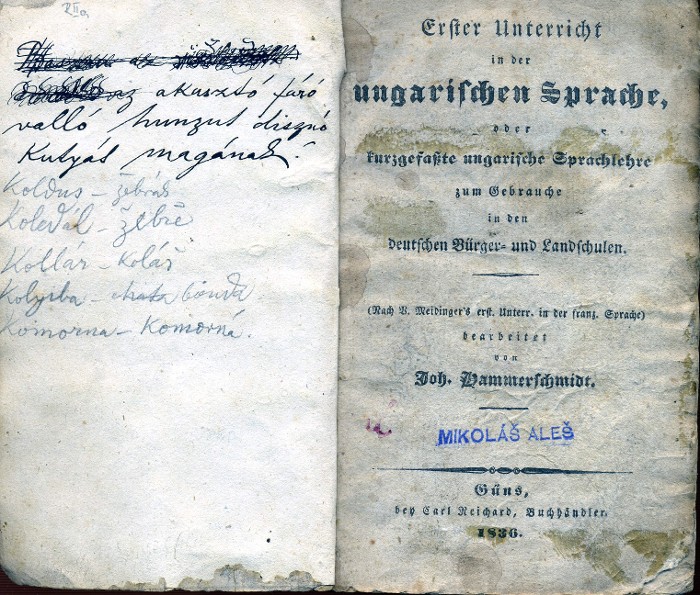 az akasztó fáró
valló hunzut disznó
Kutyás magának!
Koldus – žebrák
Koledál – žebře
Kollár – kolář
Kolyiba – chata bouda
Komorna – Komorná.
Erster Unterricht
in der
ungarischen Sprache,
oder
kurzgefaßte ungarische Sprachlehre
zum Gebrauche
in den
deutschen Bürger- und Landschulen.
(Nach V. Meidinger's erst. Unterr. in der franz. Sprache)
bearbeitet
von
Joh. Hammerschmidt.
MIKOLÁŠ ALEŠ
Güns,
bey Carl Reichard, Buchhändler.
1836.